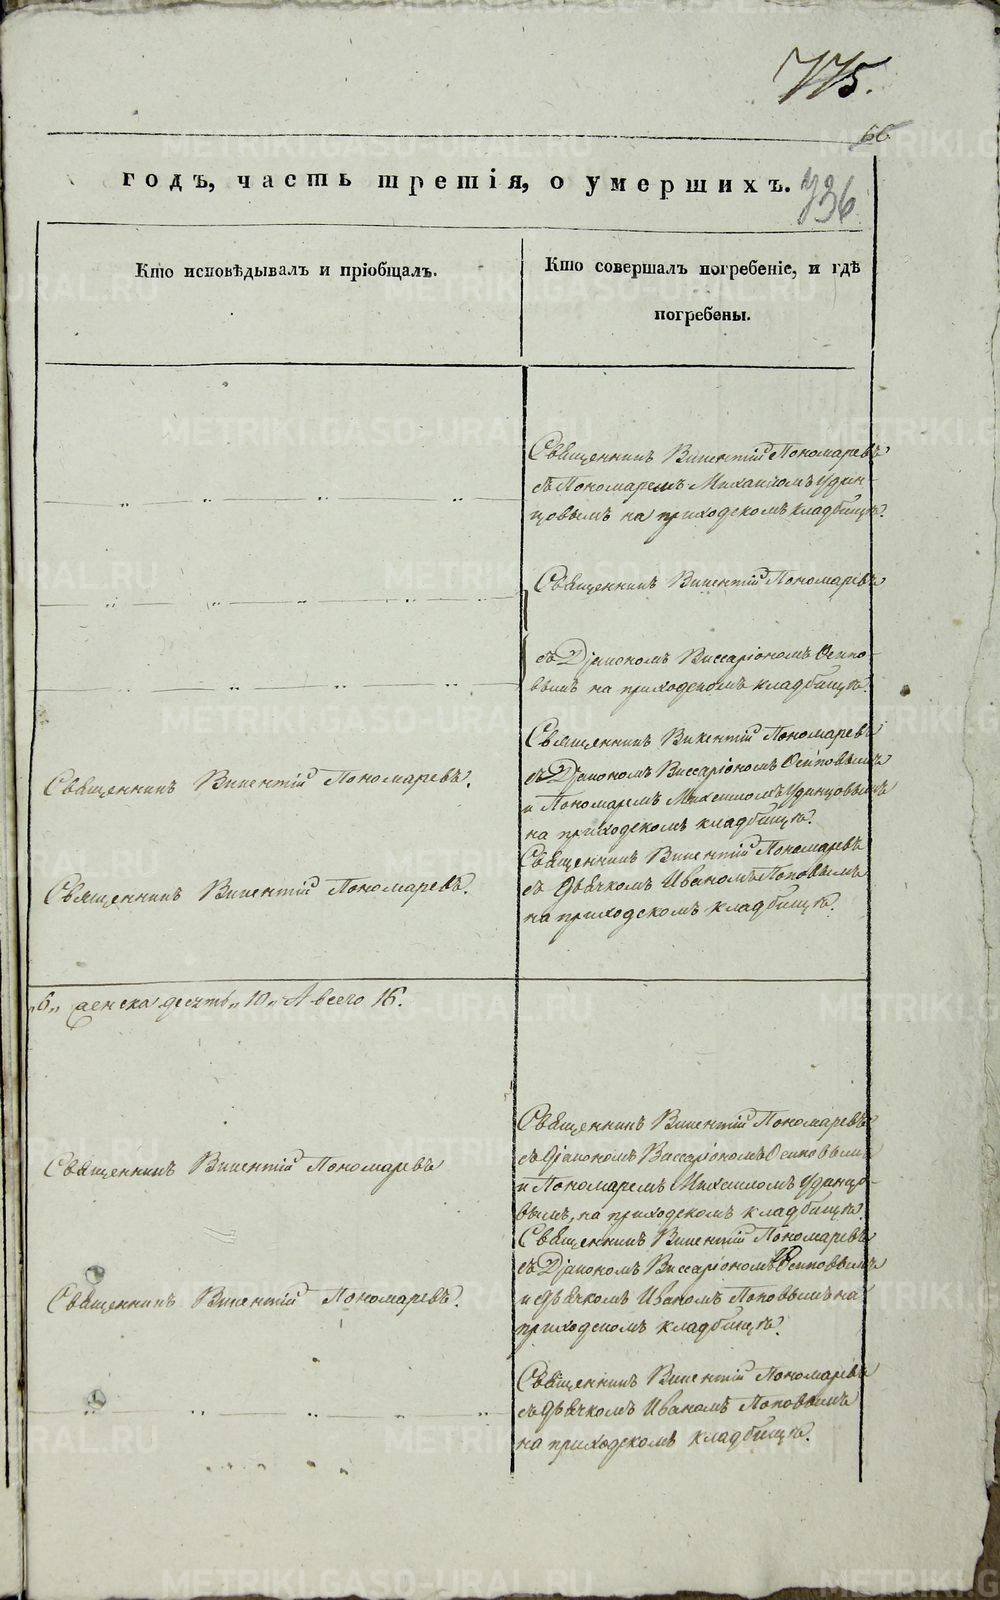 775.
66
годъ, часть третія, о умершихъ.
736
Кто исповѣдывалъ и пріобщалъ.
Кто совершалъ погребеніе, и гдѣ
погребены.
Священникъ Викентій Пономаревъ
съ Пономаремъ Михаиломъ Удин-
цовымъ на приходскомъ кладбищѣ.
Священникъ Викентій Пономаревъ
съ Діакономъ Виссаріономъ Осипо-
вымъ на приходскомъ кладбищѣ.
Священникъ Викентій Пономаревъ.
Священникъ Викентій Пономаревъ
съ Діакономъ Виссаріономъ Осиповымъ
и Пономаремъ Михаиломъ Удинцовымъ
на приходскомъ кладбищѣ.
Священникъ Викентій Пономаревъ.
Священникъ Викентій Пономаревъ
съ Дьячкомъ Иваномъ Поповымъ
на приходскомъ кладбищѣ.
„6„ женска десять „10„ А всего 16.
Священникъ Викентій Пономаревъ
Священникъ Викентій Пономаревъ
съ Діакономъ Виссаріономъ Осиповымъ
и Пономаремъ Михаиломъ Удинцо-
вымъ, на приходскомъ кладбищѣ.
Священникъ Викентій Пономаревъ.
Священникъ Викентій Пономаревъ
съ Діакономъ Виссаріономъ Осиповымъ
и Дьячкомъ Иваномъ Поповымъ на
приходскомъ кладбищѣ.
Священникъ Викентій Пономаревъ
съ Дьячкомъ Иваномъ Поповымъ
на приходскомъ кладбищѣ.
METRIKI.GASO-URAL.RU